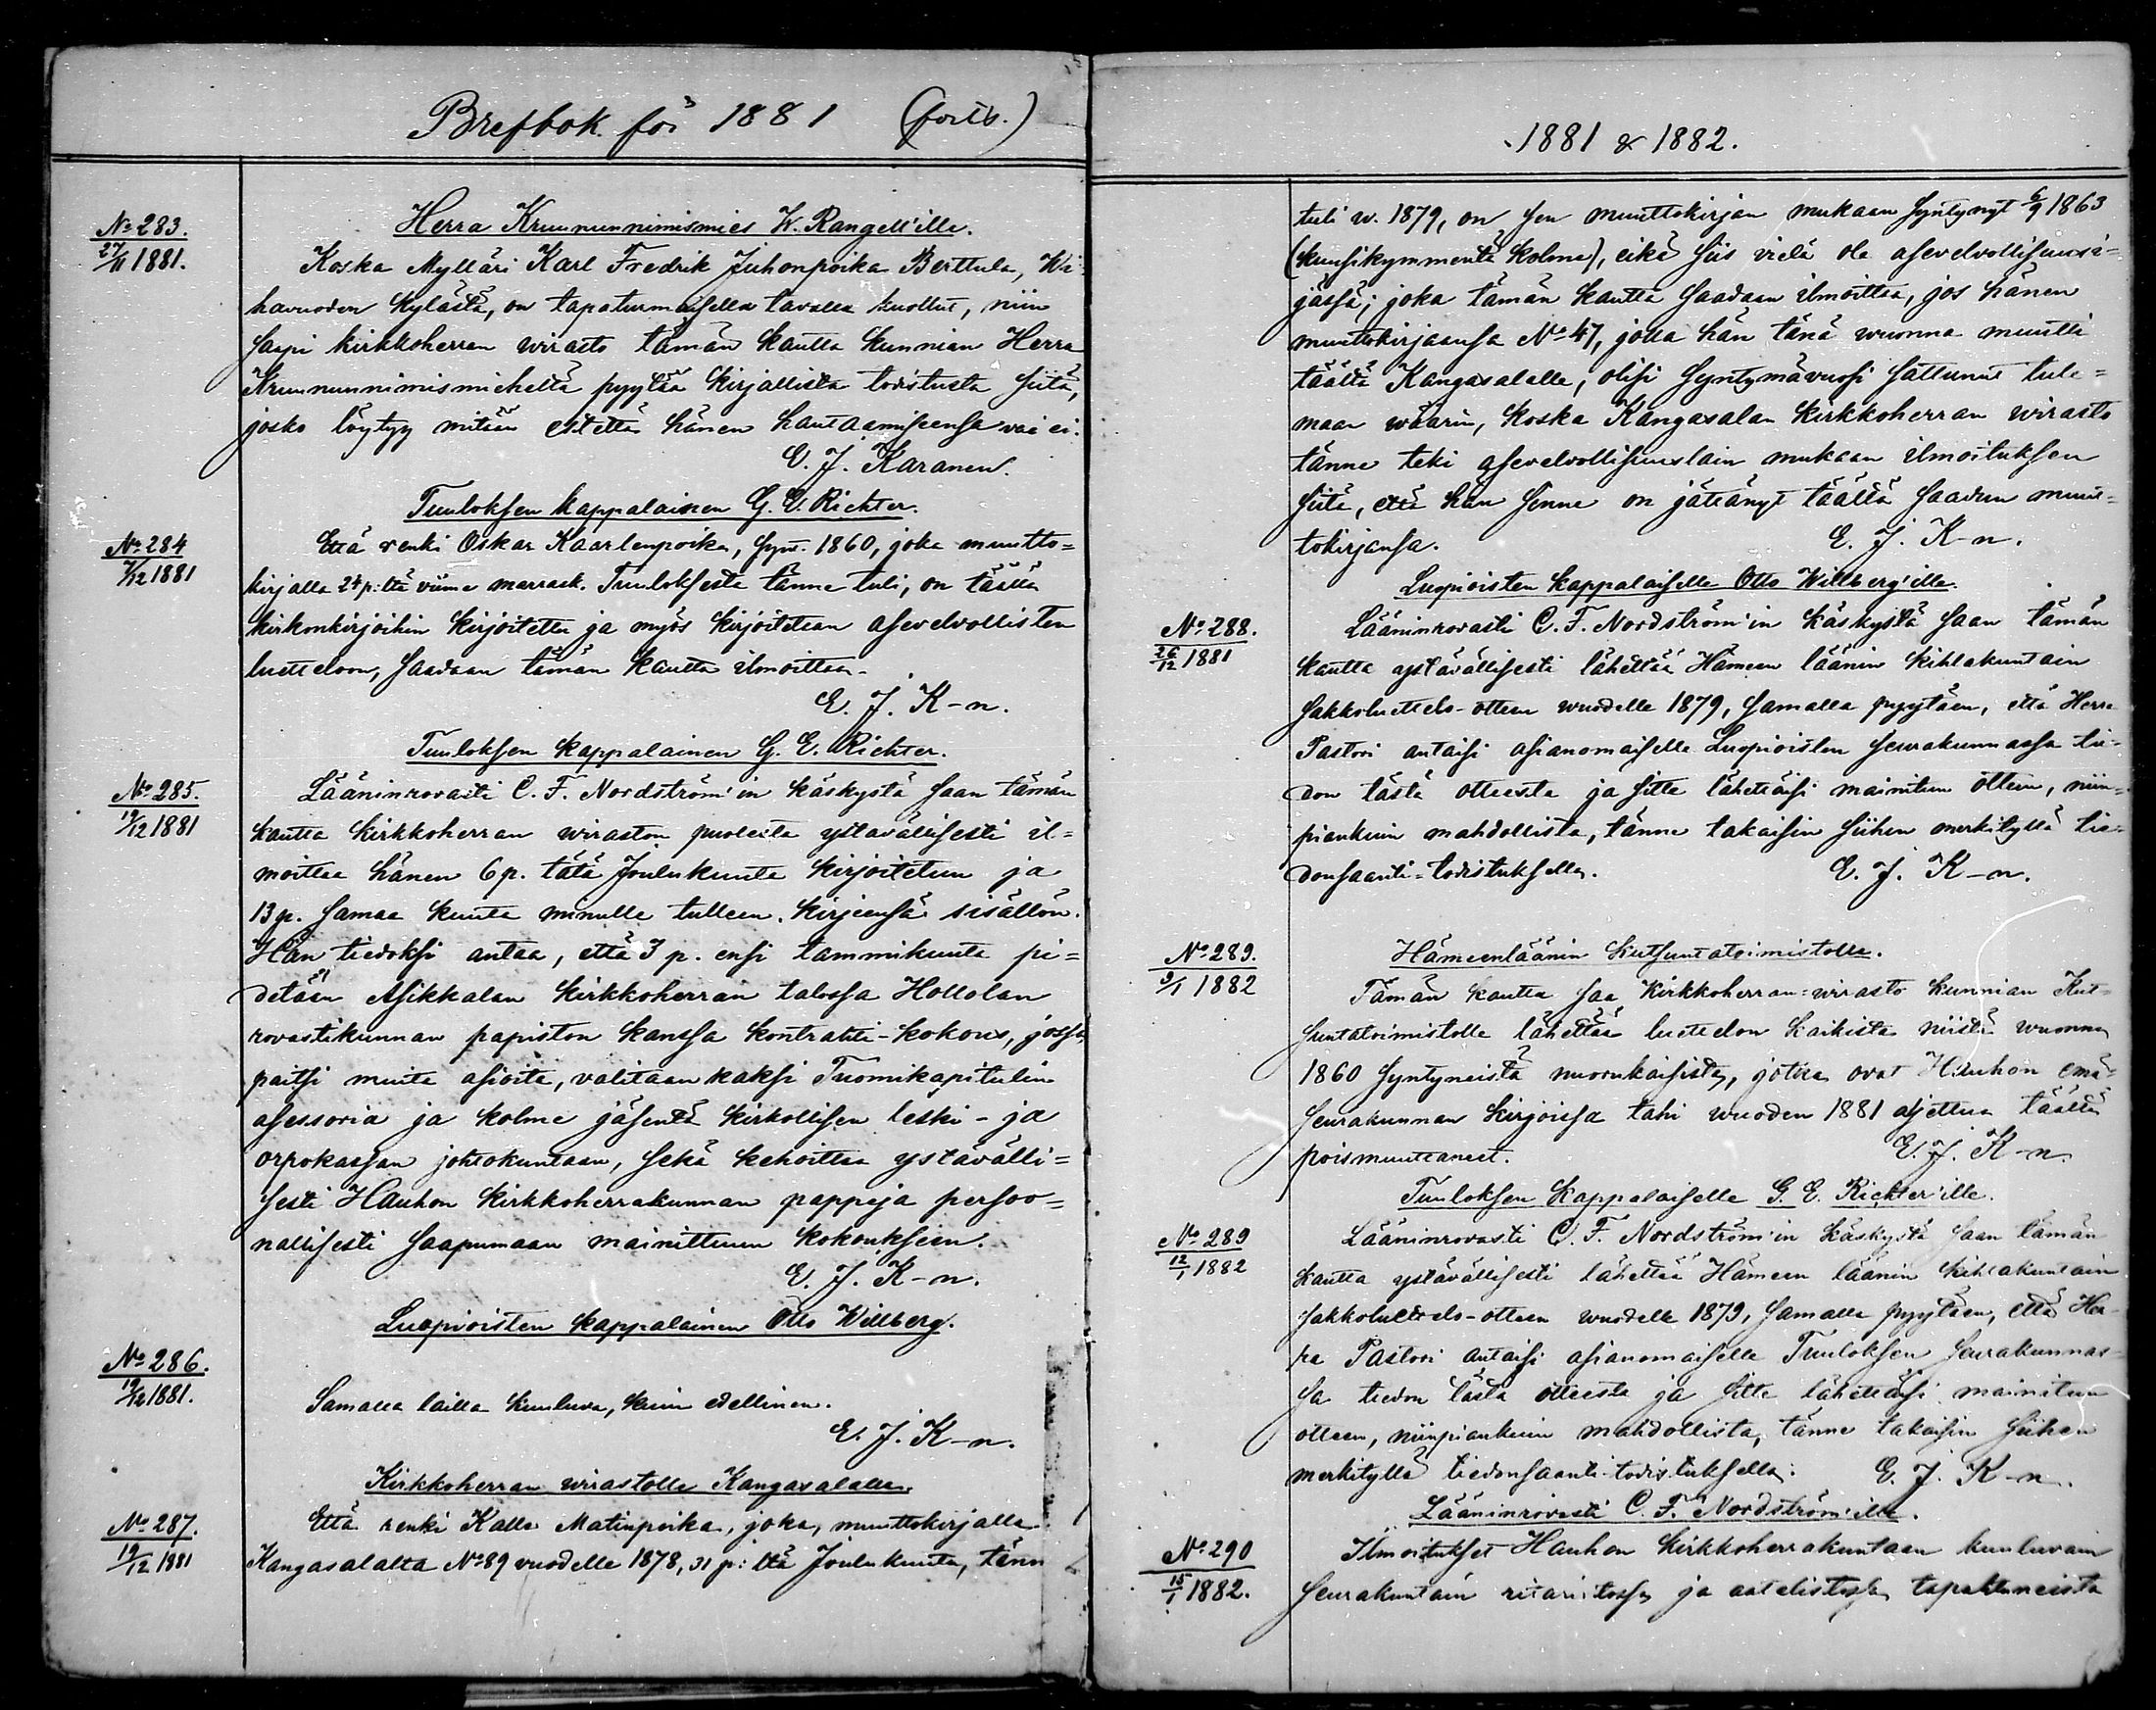 Brefbok för 1881 (forts.)
No 283.
27/11 1881.
Herra Kruununnimismies W. Rangell'ille.
Koska Mylläri Karl Fredrik Juhonpoika Berttula, Wi-
havuoden kylästä, on tapaturmaisella tavalla kuollut, niin
saapi kirkkoherran wirasto tämän kautta kunnian Herra
Kruununnimismieheltä pyytää kirjallista todistusta siitä,
josko löytyy mitään estettä hänen hautaamiseensa vai ei.
E. J. Karanen.
Tuuloksen kappalainen G. E. Richter.
No 284
7/12 1881
Että renki Oskar Kaarlenpoika, synt. 1860, joka muutto=
kirjalla 24 p:ltä viime marrask. Tuuloksesta tänne tuli, on täällä
kirkonkirjoihin kirjoitettu ja myös kirjoitetaan asevelvollisten
luetteloon, saadaan tämän kautta ilmoittaa.
E. J. K-n.
Tuuloksen kappalainen G. E. Richter.
No 285.
19/12 1881
Lääninrovasti C. F. Nordström'in käskystä saan tämän
kautta kirkkoherran wiraston puolesta ystävällisesti il=
moittaa hänen 6 p. tätä Joulukuuta kirjoitetun ja
13 p. samaa kuuta minulle tulleen kirjeensä sisällön.
Hän tiedoksi antaa, että 3 p. ensi tammikuuta pi=
detään Asikkalan kirkkoherran talossa Hollolan
rovastikunnan papiston kanssa kontrahti-kokous, jossa,
paitsi muita asioita, valitaan kaksi Tuomikapitulin
asessoria ja kolme jäsentä kirkollisen leski- ja
orpokassan johtokuntaan, sekä kehoittaa ystävälli=
sesti Hauhon kirkkoherrakunnan pappeja persoo=
nallisesti saapumaan mainittuun kokoukseen.
E. J. K-n.
Luopioisten kappalainen Otto Willberg.
No 286.
19/12 1881.
Samalla lailla kuuluva, kuin edellinen.
E. J. K-n.
Kirkkoherran wirastolle Kangasalalla.
No 287.
19/12 1881
Että renki Kalle Matinpoika, joka, muuttokirjalla
Kangasalalta No 89 vuodelle 1878, 31 p:ltä Joulukuuta, tänn
1881 & 1882.
tuli w. 1879, on sen muuttokirjan mukaan syntynyt 6/9 1863
(kuusikymmentä kolme), eikä siis vielä ole asevelvollisuusi=
jässä; joka tämän kautta saadaan ilmoittaa, jos hänen
muuttokirjaansa No 47, jolla hän tänä wuonna muutti
täältä Kangasalalle, olisi syntymävuosi sattunut tule=
maan wäärin, koska Kangasalan kirkkoherran wirasto
tänne teki asevelvollisuuslain mukaan ilmoituksen
siitä, että hän sinne on jättänyt täältä saadun muut-
tokirjansa.
E. J. K-n.
Luopioisten kappalaiselle Otto Willberg'ille.
No 288.
26/12 1881
Lääninrovasti C. F. Nordström'in käskystä saan tämän
kautta ystävällisesti lähettää Hämeen läänin kihlakuntain
sakkoluettelo-otteen wuodelle 1879, samalla pyytäen, että Herra
Pastori antaisi asianomaiselle Luopioisten seurakunnassa tie-
don tästä otteesta ja sitte lähettäisi mainitun otteen, niin-
piankuin mahdollista, tänne takaisin siihen merkityllä tie-
donsaanti-todistuksella.
E. J. K-n.
No 289.
9/1 1882
Hämeenläänin kutsuntatoimistolle.
Tämän kautta saa kirkkoherran=wirasto kunnian Kut-
suntatoimistolle lähettää luettelon kaikista niistä wuonna
1860 syntyneistä nuorukaisista, jotka ovat Hauhon emä-
seurakunnan kirjoissa tahi wuoden 1881 ajettua täältä
poismuuttaneet.
E. J. K-n.
Tuuloksen kappalaiselle G. E. Richter'ille.
No 289
12/1 1882
Lääninrovasti C. F. Nordström'in käskystä saan tämän
kautta ystävällisesti lähettää Hämeen läänin kihlakuntain
sakkoluettelo-otteen wuodelle 1879, samalla pyytäen, että Her-
ra Pastori antaisi asianomaiselle Tuuloksen seurakunnas-
sa tiedon tästä otteesta ja sitte lähettäisi mainitun
otteen, niinpiankuin mahdollista, tänne takaisin siihen
merkityllä tiedonsaanti-todistuksella.
E. J. K-n.
Lääninrovasti C. F. Nordström'ille.
No 290
15/1 1882.
Ilmoitukset Hauhon kirkkoherrakuntaan kuuluvain
seurakuntain ritaristossa ja aatelistossa tapahtuneista